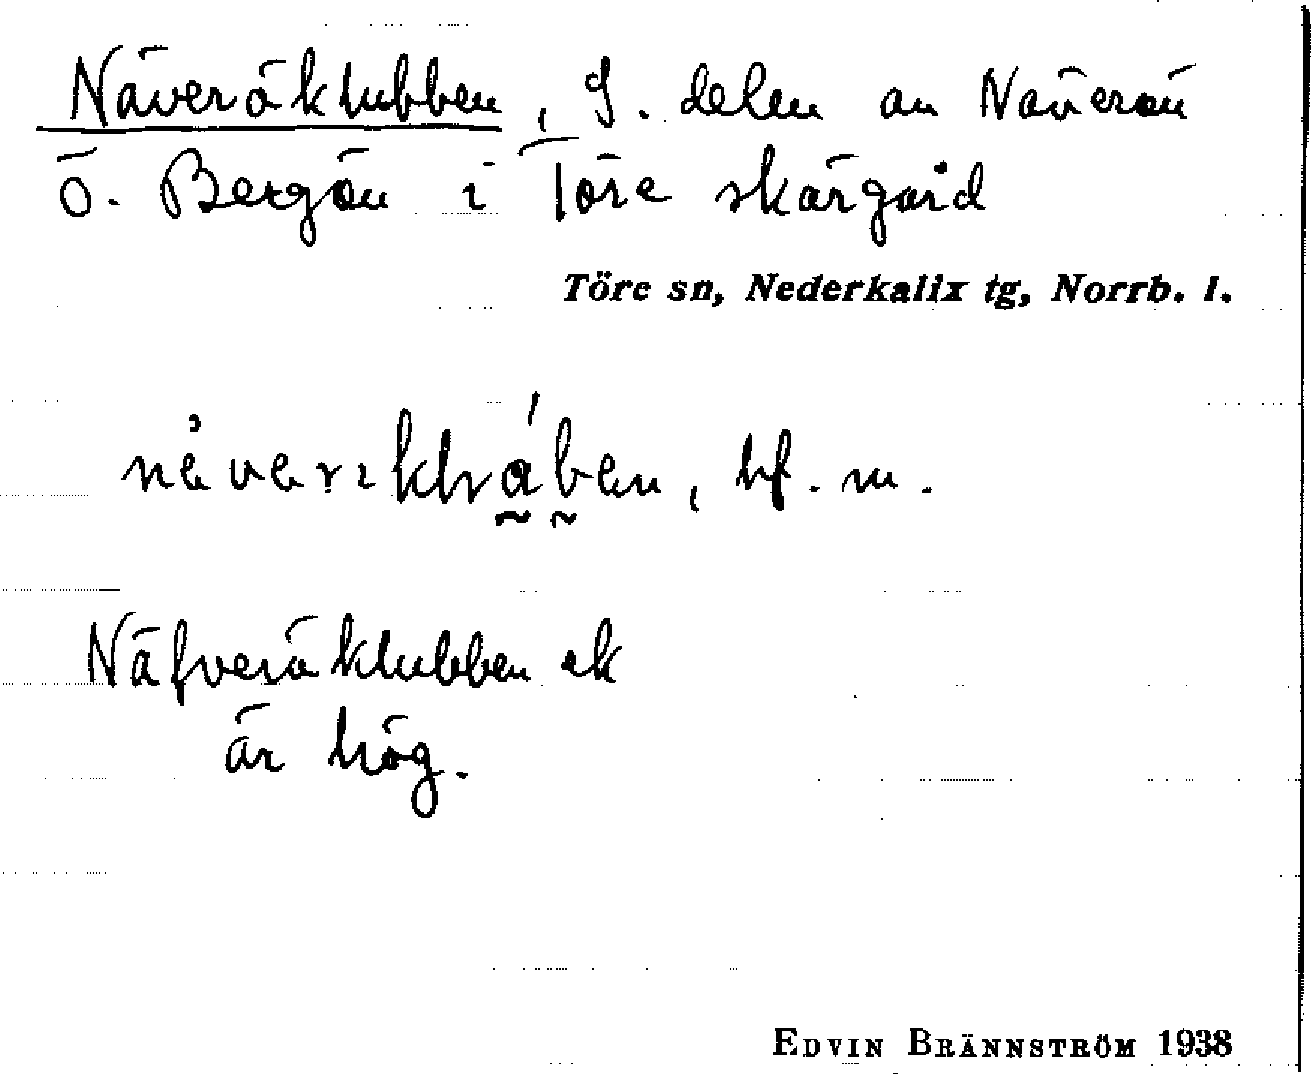 Näveröklubben, S. delen av Näverön
ö. Bergön i Töre skärgård
Töre sn, Nederkalix tg, Norrb. l.
bf. m.
Näfveröklubben ek
är hög.
EDVIN BRÄNNSTRÖM 1938